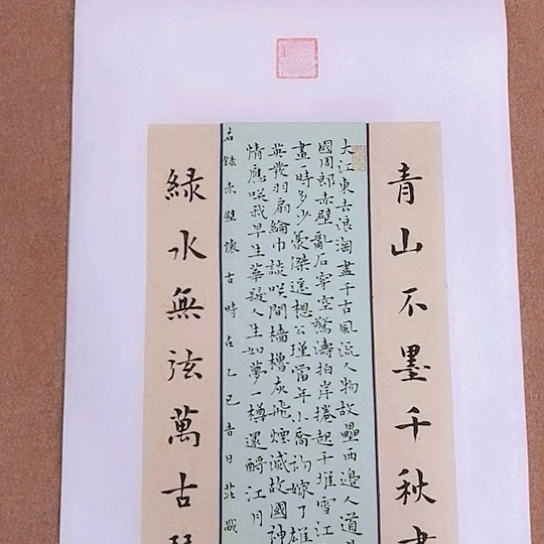 青山不墨千秋
大江東去浪淘盡千古風流人物故壘西邉人道是
國周郎赤壁亂石穿空驚濤拍岸捲起千堆雪江
畫一時多少豪傑遥想公瑾當年小喬初嫁了雄
英發羽扇綸巾談咲間檣櫓灰飛煙滅故國神
情應咲我早生華髮人生如夢一樽還酹江月
名錄赤壁懐古時在乙巳吉日
緑水無弦萬古